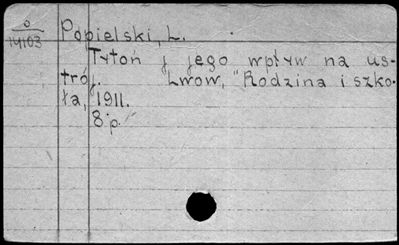 o
14103
Popielski, L.
Tytoń j jego wpływ na us-
trój. Lwow, "Rodzina i szko-
ła, 1911.
8 p.